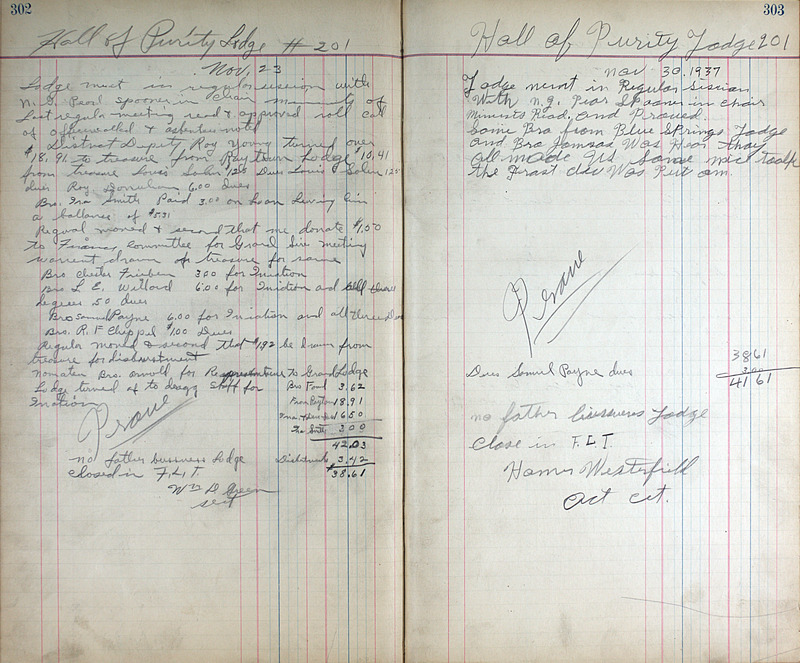 302
Hall of Purity Lodge # 201
Nov, 23
Lodge meet in regular session with
N. G. Pearl Spooner in Chair minuets of
Last regular meeting read & approved roll call
of officers called & absentees noted
District Deputy Roy Young turned over
$18.91 to treasure from Raytown Lodge $10.41
from treasure Louis Solin 1.25 Dues Louis Solin 1.25
dues Roy 6.00 Dues
Bro. Ira Smith Paid 3.00 on Loan Leving him
a ballance of $5.31
Regual moved & second that we donate $1.00
to Finans Committee for Grand Sire meeting
warrent drawn of treasure for same
Bro Chester 3.00 for Iniation
Bro L. E. Willard 6.00 for Iniation and all three
degrees .50 dues
Bro Samuel Payne 6.00 for Iniation and all three Dues
Bro. R. F Chippel $1.00 Dues
Regular moved & second that $1.92 be drawn from
treasure for disburstment
nomiaten Bro. for Representive to Grand Lodge
Lodge turned of to degg Staff for
Iniation
Bro Ford 3.62
18.91
16.50
Ira Smith 3.00
42.03
3.42
$38.61
Prove
no father bussness Lodge
closed in F, L, T
Wm D Green
sect
303
Hall of Purity Lodge 201
nov 30.1937
Lodge memt in Regular Sission
With n.g. Pear Spooner in chair
Minuets Riad. and Proued.
Some Bro from Blue Springs Lodge
and Bro Jamsad Was Hear thay
all made Us Some mice taalk
the Frast das Was Put am.
Prove
3861
3.00
4161
Dues Samuel Payne dues
no father Lodge
Close in F. L. T.
Homer Westerfield
Act cet.